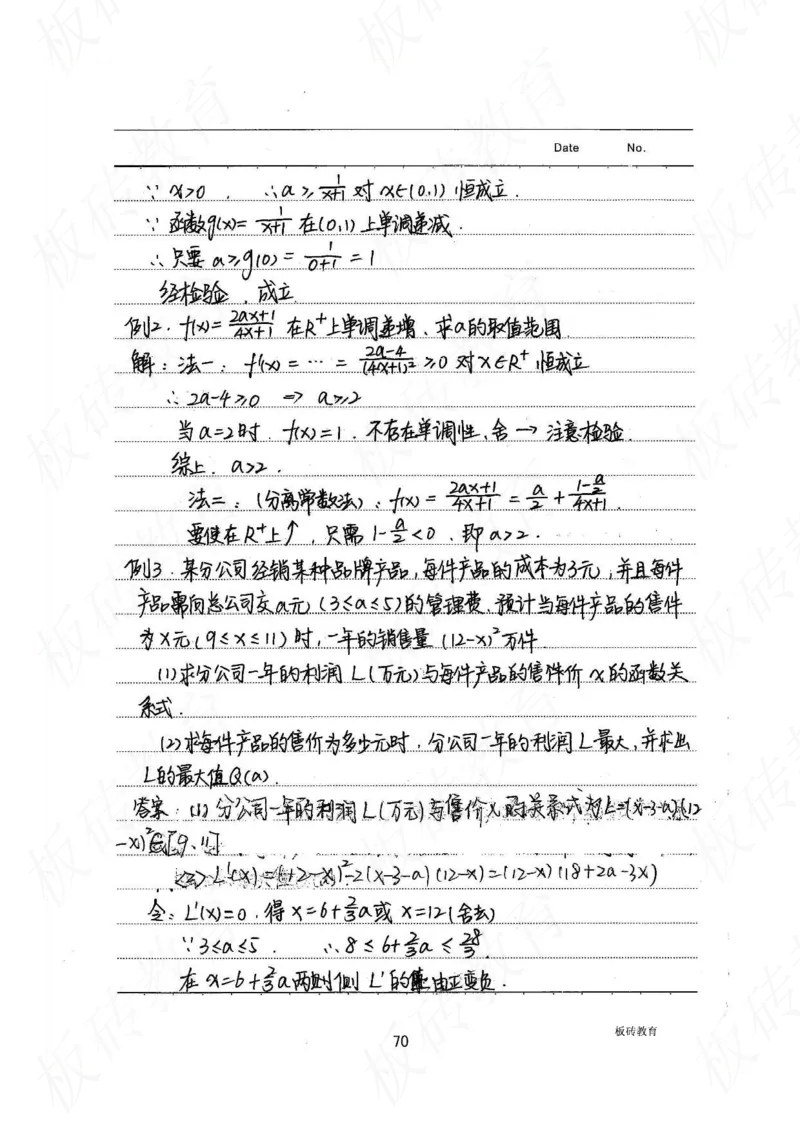 Date No.
∵ x>0 , ∴a ≥ 1/(x+1) 对 x∈(0,1) 恒成立.
∵ 函数g(x)= 1/(x+1) 在(0,1)上单调递减.
∴ 只要 a≥g(0) = 1/(0+1) = 1
经检验, 成立
例2. f(x)= (2ax+1)/(4x+1) 在R⁺上单调递增、求a的取值范围.
解: 法一: f'(x) = ⋯ = (2a-4)/(4x+1)² ≥0 对 x∈R⁺ 恒成立
∴ 2a-4≥0 => a≥2
当 a=2时. f(x)=1. 不存在单调性,舍 → 注意检验.
综上. a>2.
法二: (分离常数法): f(x) = (2ax+1)/(4x+1) = a/2 + (1-a/2)/(4x+1).
要使在R⁺上↑, 只需 1-a/2<0, 即 a>2.
例3. 某分公司经销某种品牌产品,每件产品的成本为3元,并且每件
产品需向总公司交a元(3≤a≤5)的管理费.预计当每件产品的售件
为x元(9≤x≤11)时,一年的销售量(12-x)²万件.
(1)求分公司一年的利润L(万元)与每件产品的售件价x的函数关
系式.
(2)求每件产品的售价为多少元时,分公司一年的利润L最大,并求出
L的最大值Q(a).
答案: (1) 分公司一年的利润L(万元)与售价x的关系式为L=(x-3-a)(12
-x)² [9、11]
<2> L'(x) = (12-x)²-2(x-3-a)(12-x)=(12-x)(18+2a-3x)
令: L'(x)=0. 得 x=6+2/3a或 x=12(舍去)
∵3≤a≤5. ∴8≤6+2/3a≤28/3.
在 x=6+2/3a两侧 L'的值由正变负.
板砖教育
70